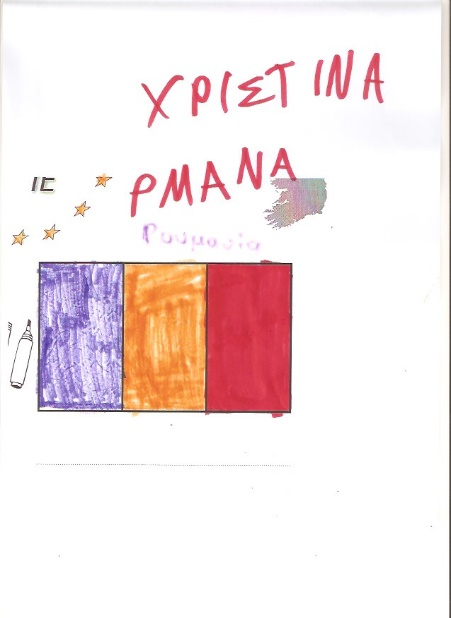 ΧΡΙΣΤΙΝΑ
ΡΜΑΝΑ
Ρουμανία
IE